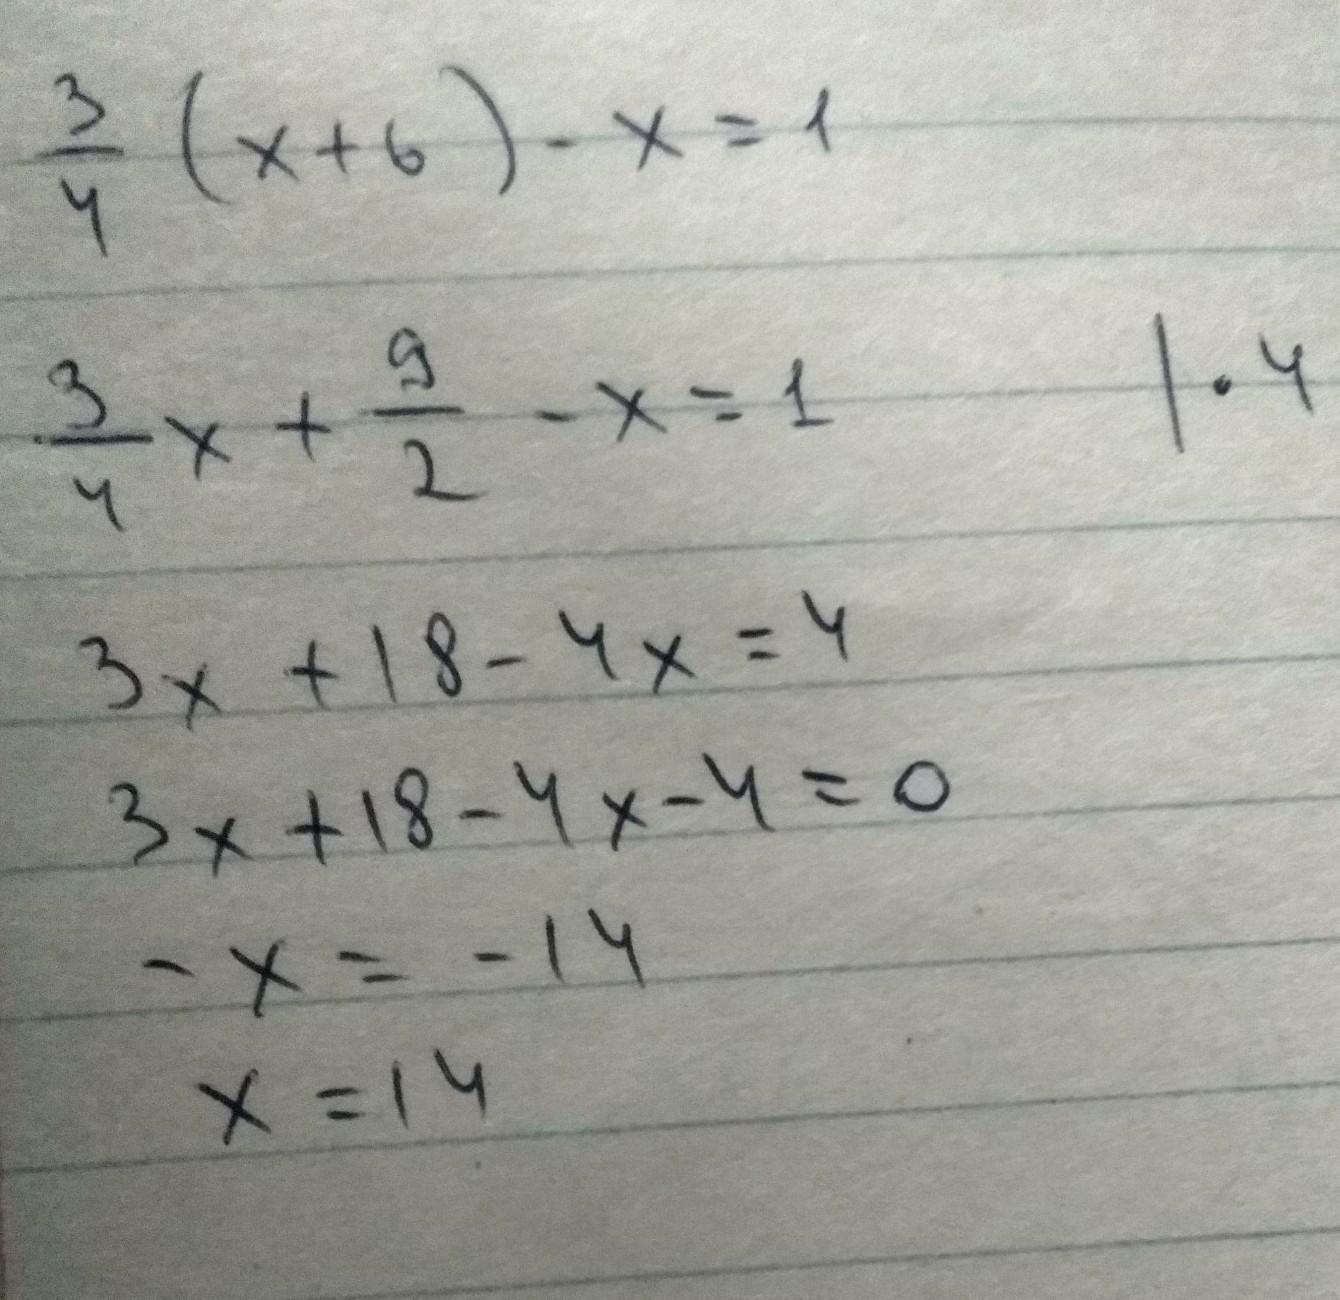 3/4 (x+6) - x = 1
3/4 x + 9/2 - x = 1 | · 4
3x + 18 - 4x = 4
3x + 18 - 4x - 4 = 0
- x = - 14
x = 14